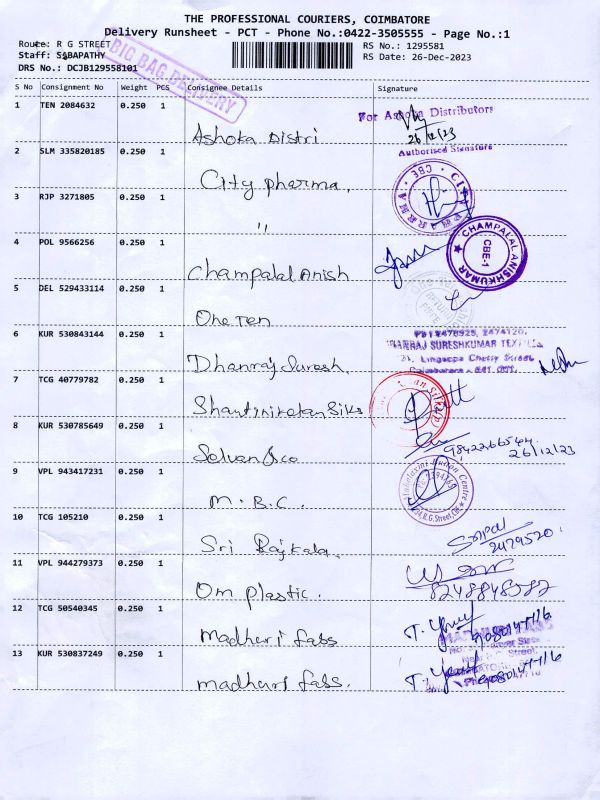 THE PROFESSIONAL COURIERS, COIMBATORE
Delivery Runsheet - PCT - Phone No.:0422-3505555 - Page No.:1
Route: R G STREET
RS No.: 1295581
Staff: SABAPATHY
RS Date: 26-Dec-2023
DRS No.: DCJB129558101
BIG BAG DELIVERY
S No Consignment No Weight PCS Consignee Details Signature
1 TEN 2084632 0.250 1 Ashoka Distri
For Ashoka Distributors
26/12/23
Authorised Signature
2 SLM 335820185 0.250 1 City pharma.
CITY PHARMA CBE
3 RJP 3271805 0.250 1 "
4 POL 9566256 0.250 1 Champalal Anish
CHAMPALAL ANISHKUMAR CBE-1
5 DEL 529433114 0.250 1 One Ten
6 KUR 530843144 0.250 1 Dhanraj Suresh.
SURESHKUMAR
Lingappa Chetty Street
7 TCG 40779782 0.250 1 Shantiniketan Silks
8 KUR 530785649 0.250 1 Selvan & co
9842266544
26/12/23
9 VPL 943417231 0.250 1 M. B. C.
R.G. Street, CBE
10 TCG 105210 0.250 1 Sri Rajkala.
2479520
11 VPL 944279373 0.250 1 Om plastic.
8248848582
12 TCG 50540345 0.250 1 madhari fabs
13 KUR 530837249 0.250 1 madhari fabs.